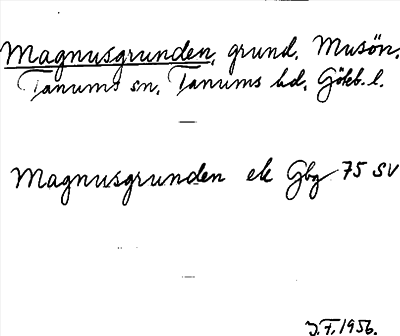 Magnusgrunden, grund. Musön.
Tanums sn, Tanums hd, Göteb. l.
Magnusgrunden ek Gbg 75 SV
J.F. 1956.